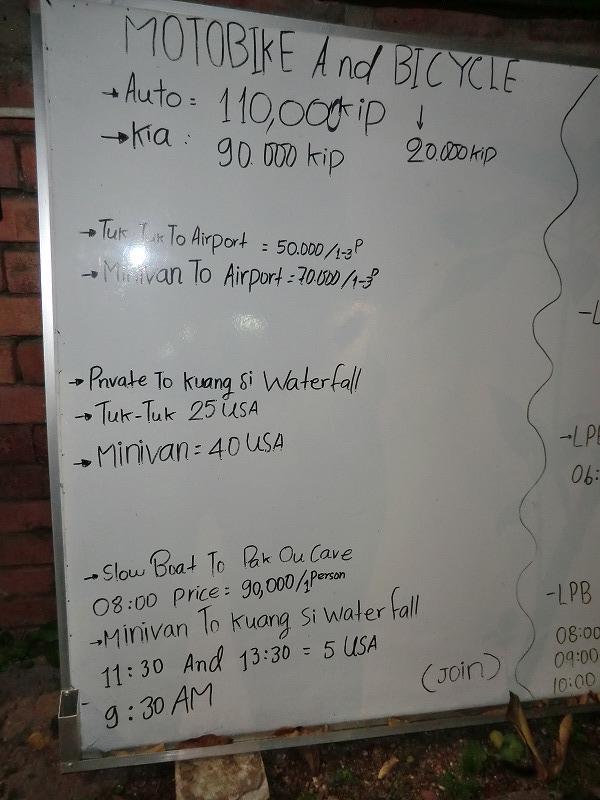 MOTOBIKE And BICYCLE
→Auto = 110,000kip ↓
→Kia : 90.000 kip 20.000kip
→Tuk-Tuk To Airport = 50.000/1-3P
→Minivan To Airport = 70.000/1-3P
→Private To Kuang Si Waterfall
→Tuk-Tuk 25 USA
→Minivan = 40 USA
→Slow Boat To Pak Ou Cave
08:00 Price = 90,000/1Person
→Minivan To Kuang Si Waterfall
11:30 And 13:30 = 5 USA
9:30 AM
(Join)
-L
→LPB
06:
-LPB
08:00
09:00
10:00